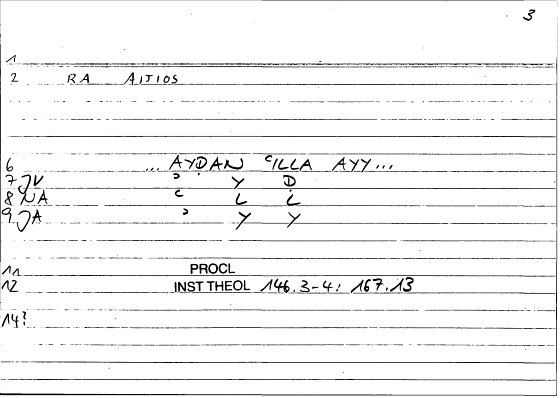 3
1
2 RA AITIOS
6 ... AYḌAN ᶜILLA AYY...
7 JV ᵓ Y Ḍ
8 NA ᶜ L L
9 JA ᵓ Y Y
11 PROCL
12 INST THEOL 146.3-4; 167.13
14?